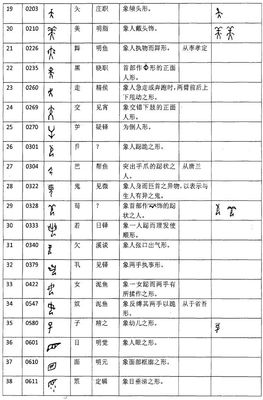 19 0203 头 庄职 象倾头形。
20 0210 美 明脂 象人戴头饰。
21 0226 舞 明鱼 象人执物而舞形。 从李孝定
22 0235 黑 晓职 首部作形的正面
人形。
23 0260 走 精侯 象人急走或奔跑时,两臂前后上
下甩动之形。
24 0269 交 见宵 象交错下肢的正面
人形。
25 0270 屰 疑铎 为倒人形。
26 0301 卪 ? 象人跽跪之形。
27 0304 巴 帮鱼 突出手爪的跽状之
人。 从唐兰
28 0322 鬼 见微 象人身而巨首之异物,以表示与
生人有异之鬼。
29 0328 苟 ? 象首部作饰的跽
状之人。
30 0333 若 日铎 象一人跽而理发使
顺形。
31 0340 欠 溪谈 象人张口出气形。
32 0379 丮 见铎 象两手执事形。
33 0422 女 泥鱼 象一女跽而两手有
所操作之形。
34 0547 奴 泥鱼 象反缚其两手以跪
形。 从于省吾
35 0580 子 精之 象幼儿之形。
36 0601 目 明觉 象人眼之形。
37 0610 面 明元 象面部框廓之形。
38 0611 眔 定缉 象目垂涕之形。